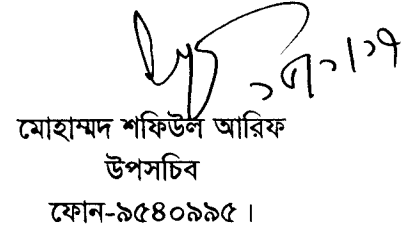 মোহাম্মদ শফিউল আরিফ
উপসচিব
ফোন-৯৫৪০৯৯৫ ।